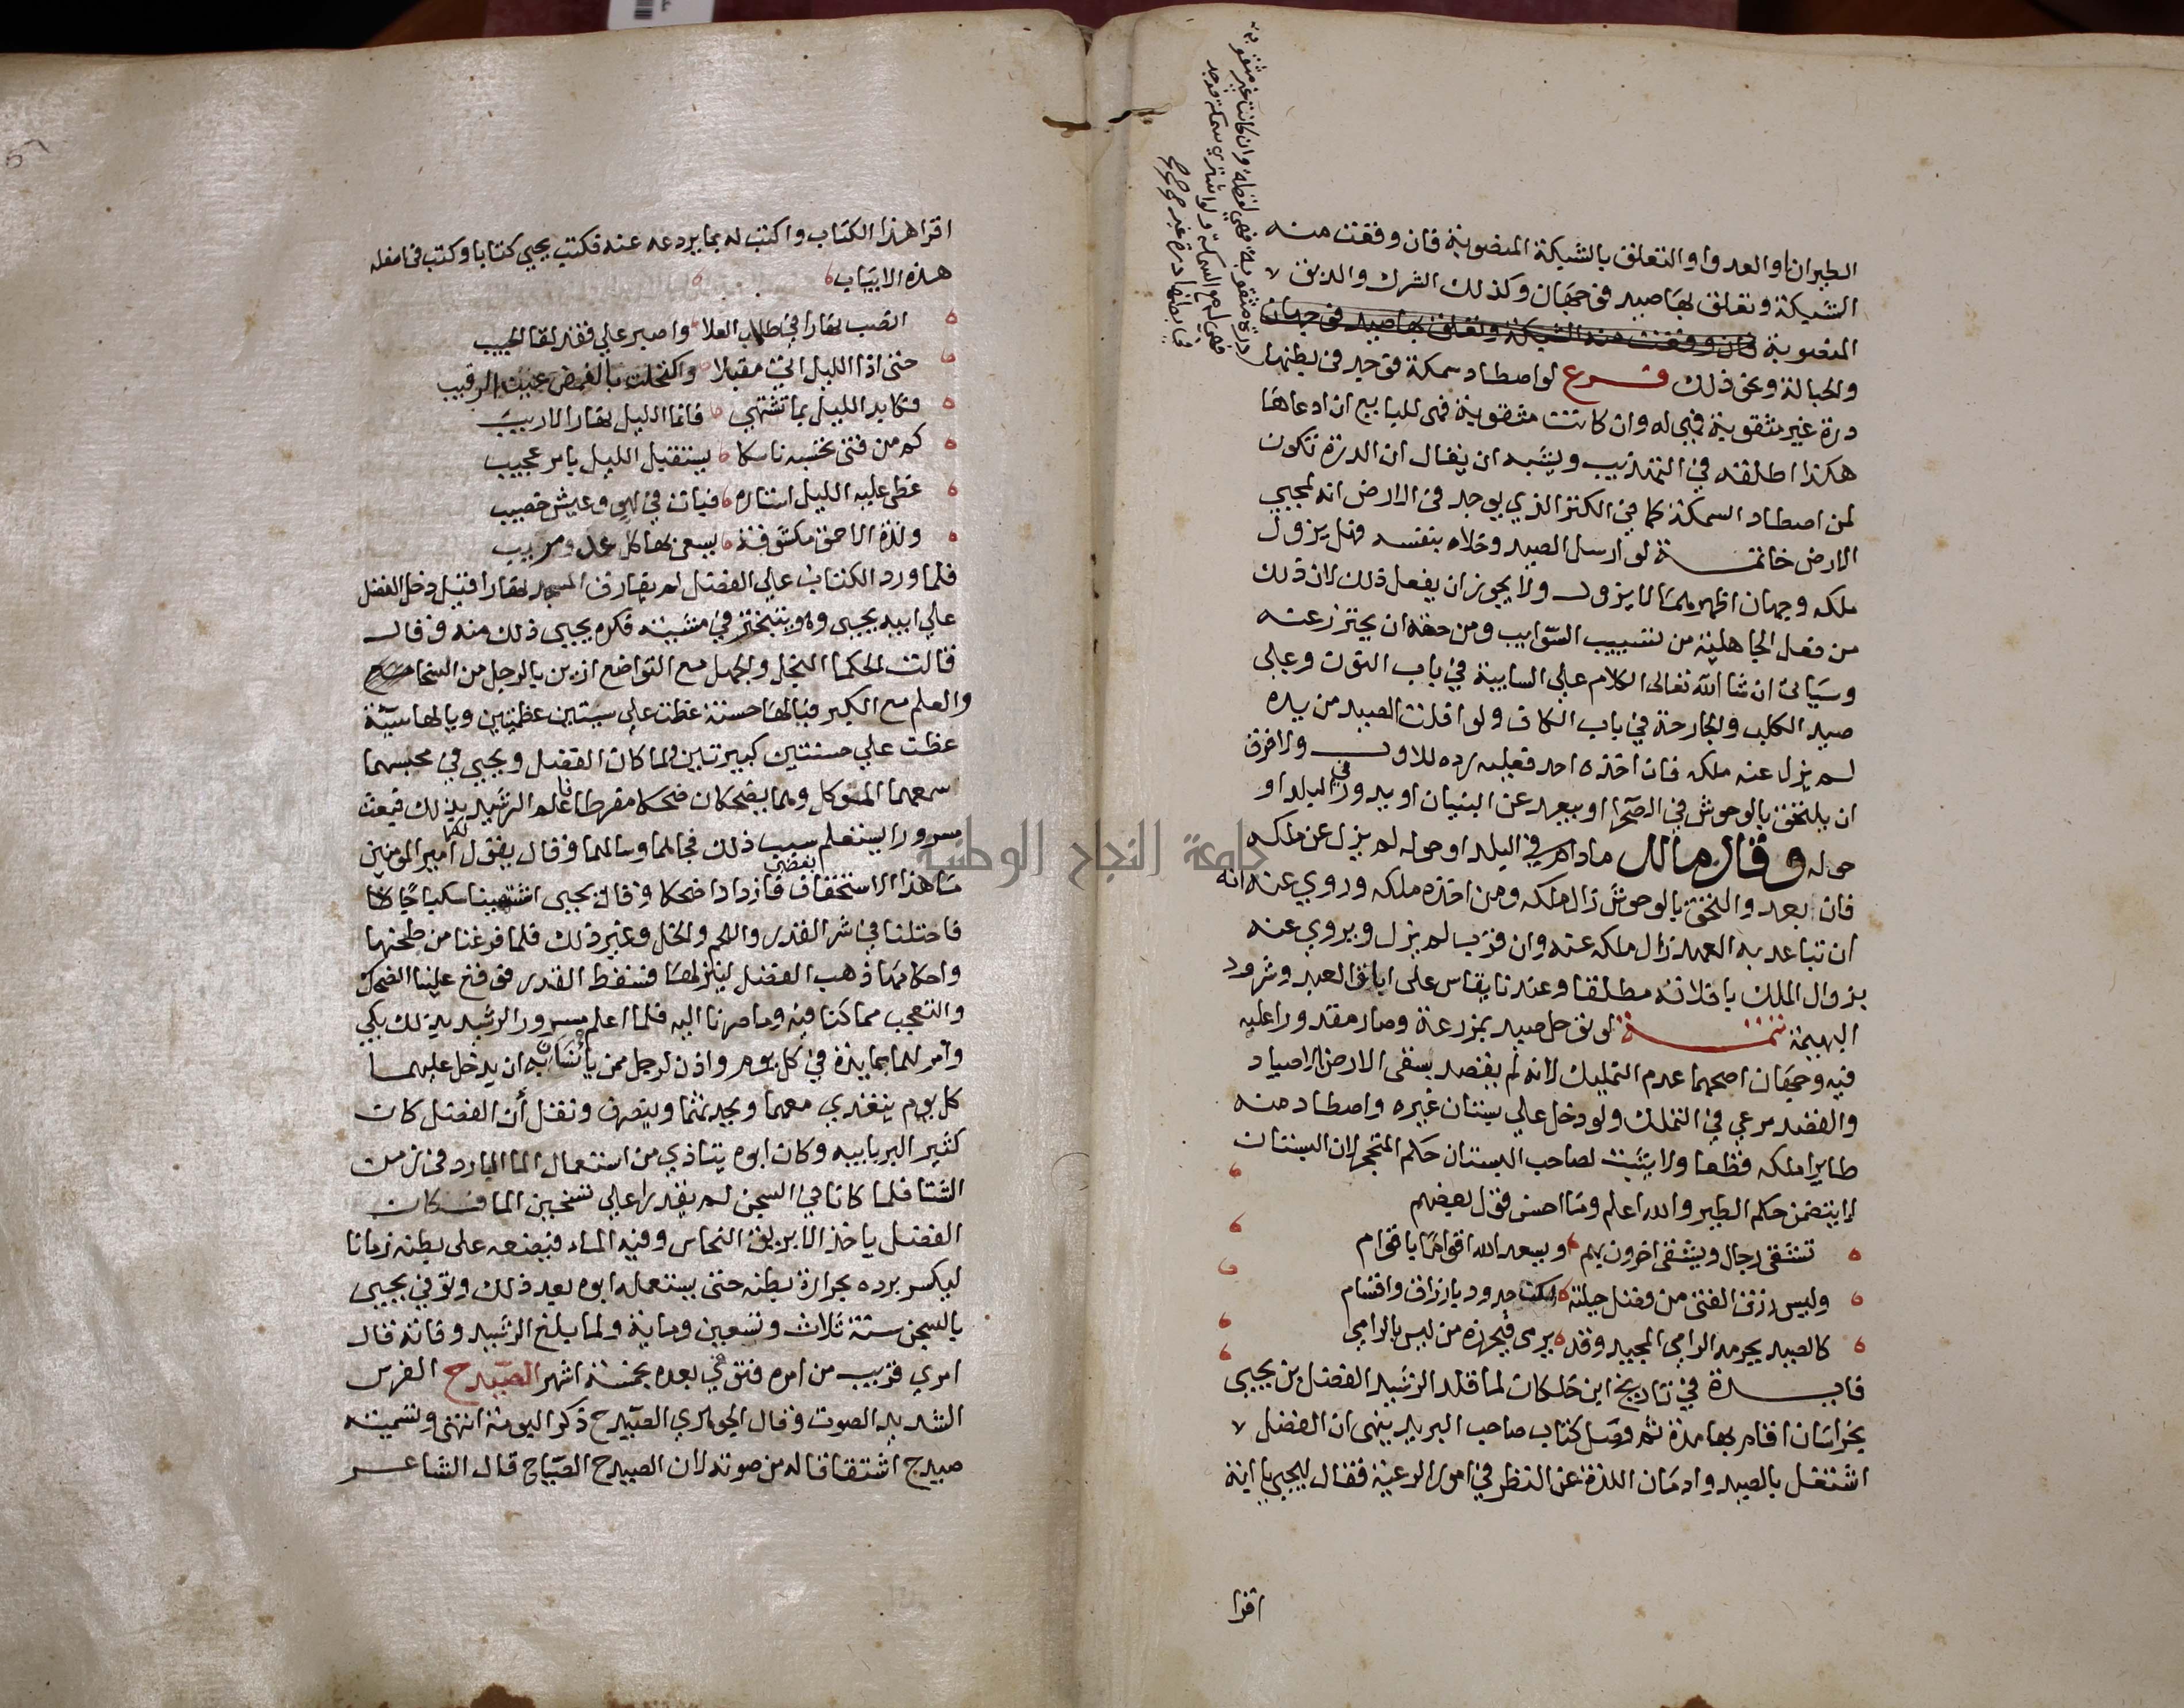 الطيران او العدو او التعلق بالشبكة المنصوبة فان وقعت منه
الشبكة وتعلق بها صيد فوجهان وكذلك الشرك والدبق لا
المنصوبة فان وقعت منه الشبكة وتعلق بها صيد فوجهان
والحبالة ونحو ذلك فرع لو اصطاد سمكة فوجد في بطنها
درة غير مثقوبة فهي له وان كانت مثقوبة فهي للبايع ان ادعاها
هكذا اطلقه في التهذيب ويشبه ان يقال ان الدرة تكون
لمن اصطاد السمكة كما في الكنز الذي يوجد في الارض انه لمحيي
الارض خاتمة لو ارسل الصيد وخلاه بنفسه فهل يزول
ملكه وجهان اظهرهما لا يزول ولا يجوز ان يفعل ذلك لان ذلك
من فعل الجاهلية من تسييب السوايب ومن حقه ان يحترز عنه
وسياتي ان شا الله تعالى الكلام علي السايبة في باب النون وعلى
صيد الكلب والجارحة في باب الكاف ولو افلت الصيد من يده
لم يزل عنه ملكه فان اخذه احد فعليه رده للاول ولا فرق
ان يلتحق بالوحوش في الصحرا او يبعد عن البنيان او يدور في البلد او
حوله وقال مالك ما دام في البلد او حوله لم يزل عن ملكه
فان بعد والتحق بالوحوش زال ملكه ومن اخذه ملكه وروي عنه انه
ان تباعد به العهد زال ملكه عنه وان قرب لم يزل ويروي عنه
بزوال الملك بافلاته مطلقا وعندنا يقاس على اباق العبد وشرود
البهيمة تتمة لو توحل صيد بمزرعة وصار مقدورا عليه
فيه وجهان اصحهما عدم التمليك لانه لم يقصد بسقي الارض الاصياد
والقصد مرعي في التملك ولو دخل علي بستان غيره واصطاد منه
طايرا ملكه قطعا ولا يثبت لصاحب البستان حكم المتحجر لان البستان
لا يتضمن حكم الطير والله اعلم وما احسن قول بعضهم
تشقي رجال ويشقى اخرون بهم ويسعد الله اقواما باقوام
وليس رزق الفتى من فضل حيلته لكن حدود بارزاق واقسام
كالصيد يحرمه الرامي المجيد وقد يرمي فيحرزه من ليس بالرامي
فايدة في تاريخ ابن خلكان لما قلد الرشيد الفضل بن يحيى
بخراسان اقام بها مدة ثم وصل كتاب صاحب البريد ينهى ان الفضل لا
اشتغل بالصيد وادمان اللذة عن النظر في امور الرعية فقال ليحيى يا ابة
اقرا
درة مثقوبة فهي لقطة وان كانت غير مثقوبة
فهي له مع السمكة ولو اشترى سمكة فوجد
في بطنها درة غير
اقرا هذا الكتاب واكتب له بما يردعه عنه فكتب يحيى كتابا وكتب في اسفله
هذه الابيات
انصب نهارا في طلاب العلا واصبر علي فقد لقا الحبيب
حتى اذا الليل اتى مقبلا واكتحلت بالغمض عين الرقيب
فكابد الليل بما تشتهي فانما الليل نهار الاريب
كم من فتى تحسبه ناسكا يستقبل الليل بامر عجيب
غطى عليه الليل استاره فبات في لهو وعيش خصيب
ولذة الاحمق مكشوفة يسعى بها كل عدو مريب
فلما ورد الكتاب علي الفضل لم يفارق المسجد نهارا قيل دخل الفضل
علي ابيه يحيى وهو يتبختر في مشيته فكره يحيى ذلك منه وقال
قالت الحكما البخل والجهل مع التواضع ازين بالرجل من السخا
والعلم مع الكبر فيالها حسنة غطت على سيئتين عظمتين ويا لها سيئة
غطت علي حسنتين كبيرتين ولما كان الفضل ويحيى في محبسهما
سمعهما المتوكل وهما يضحكان ضحكا مفرطا فاعلم الرشيد بذلك فبعث
مسرورا يستعلم سبب ذلك فجاهما وسالهما وقال يقول لكما امير المومنين
ما هذا الاستخفاف بغضبي فازدادا ضحكا وقال يحيى اشتهينا سكباجا
فاحتلنا في شرا القدر واللحم والخل وغير ذلك فلما فرغنا من طبخها
واحكامها ذهب الفضل لينزلها فسقط القدر فوقع علينا الضحك
والتعجب مما كنا فيه وما صرنا اليه فلما اعلم مسرور الرشيد بذلك بكي
وامر لهما بمايدة في كل يوم واذن لرجل ممن يأنسان به ان يدخل عليهما
كل يوم يتغدي معهما ويحدثهما وينصرف ونقل أن الفضل كان
كثير البر بابيه وكان ابوه يتاذي من استعمال الما البارد في زمن
الشتا فلما كانا في السجن لم يقدرا علي تسخين الما فكان
الفضل ياخذ الابريق النحاس وفيه الماء فيضعه على بطنه زمانا
ليكسر برده بحرارة بطنه حتى يستعمله ابوه بعد ذلك وتوفي يحيى
بالسجن سنة ثلاث وتسعين وماية ولما بلغ الرشيد وفاته قال
امري قريب من امره فتوفي بعده بخمسة اشهر الصيدح الفرس
الشديد الصوت وقال الجوهري الصيدح ذكر البومة انتهى وتسميته
صيدح اشتقاقا له من صوته لان الصيدح الصياح قال الشاعر
جامعة النجاح الوطنية